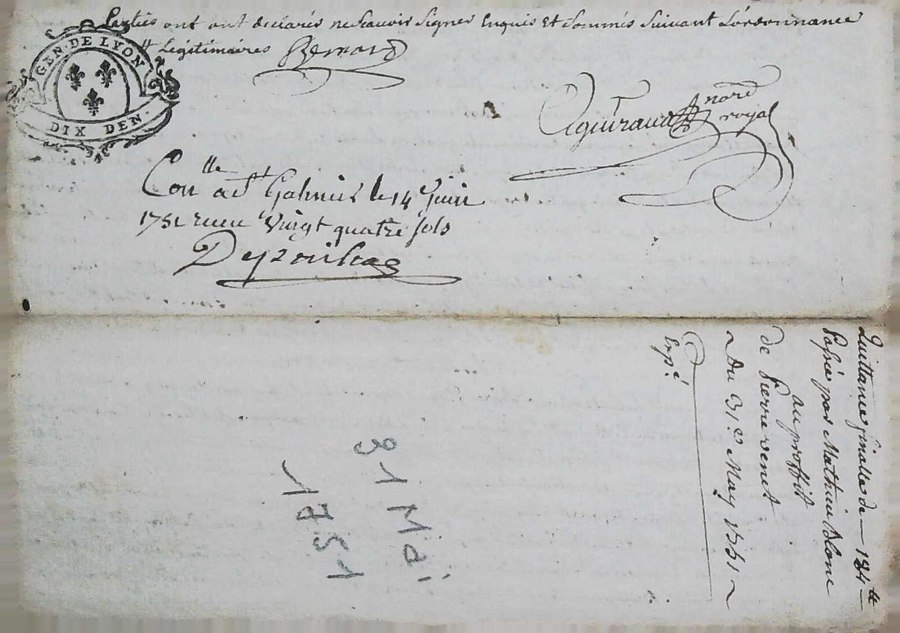 Parties ont ont declarés ne scavoir signer Enquis Et sommés suivant L'ordonnance
Legitimaires Bernard
GEN. DE LYON
DIX DEN.
Aguiraud nore
royal
Con lle a st Galmier le 14e Juin
1751 receu Vingt quatre sols
Quittance finalle de — 184 tt
Passée par Mathieu Blanc
au proffit
de Pierre venet
Du 31e May 1751
Expé.
31 Mai
1751